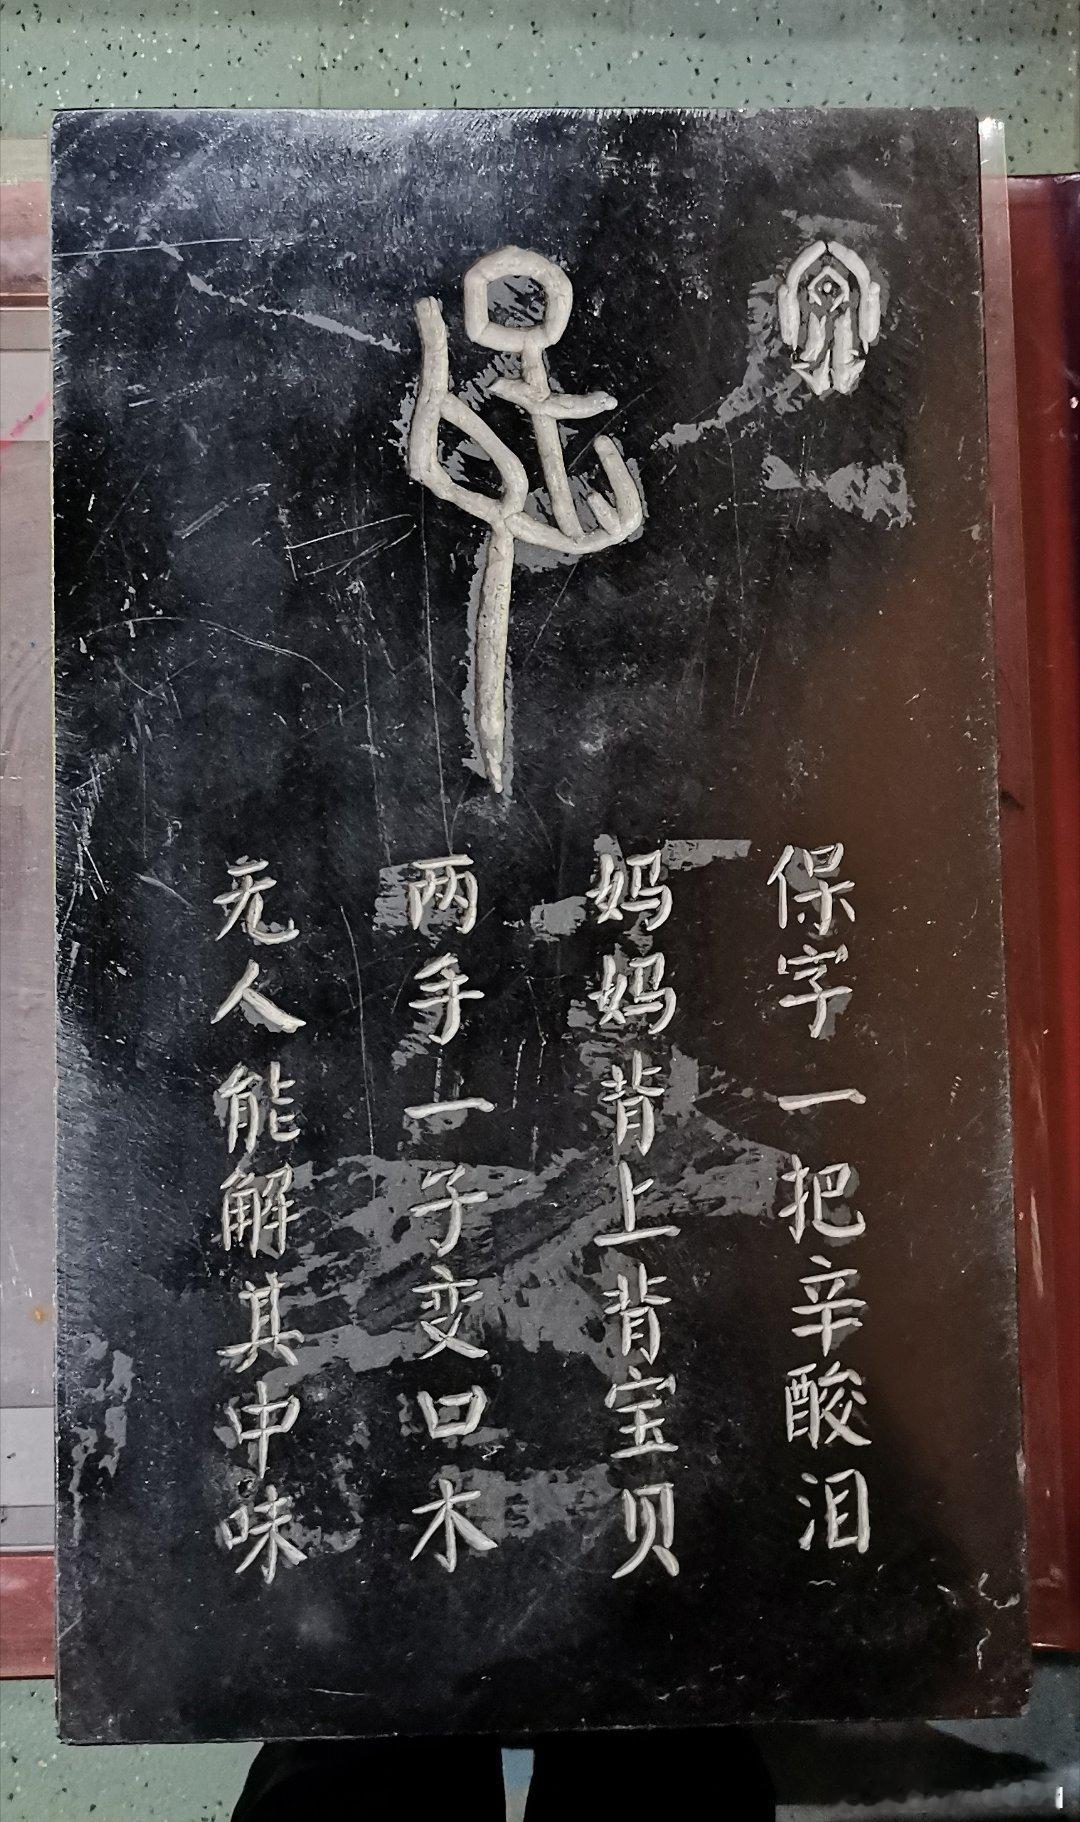 保字一把辛酸泪
妈妈背上背宝贝
两手一子变口木
无人能解其中味